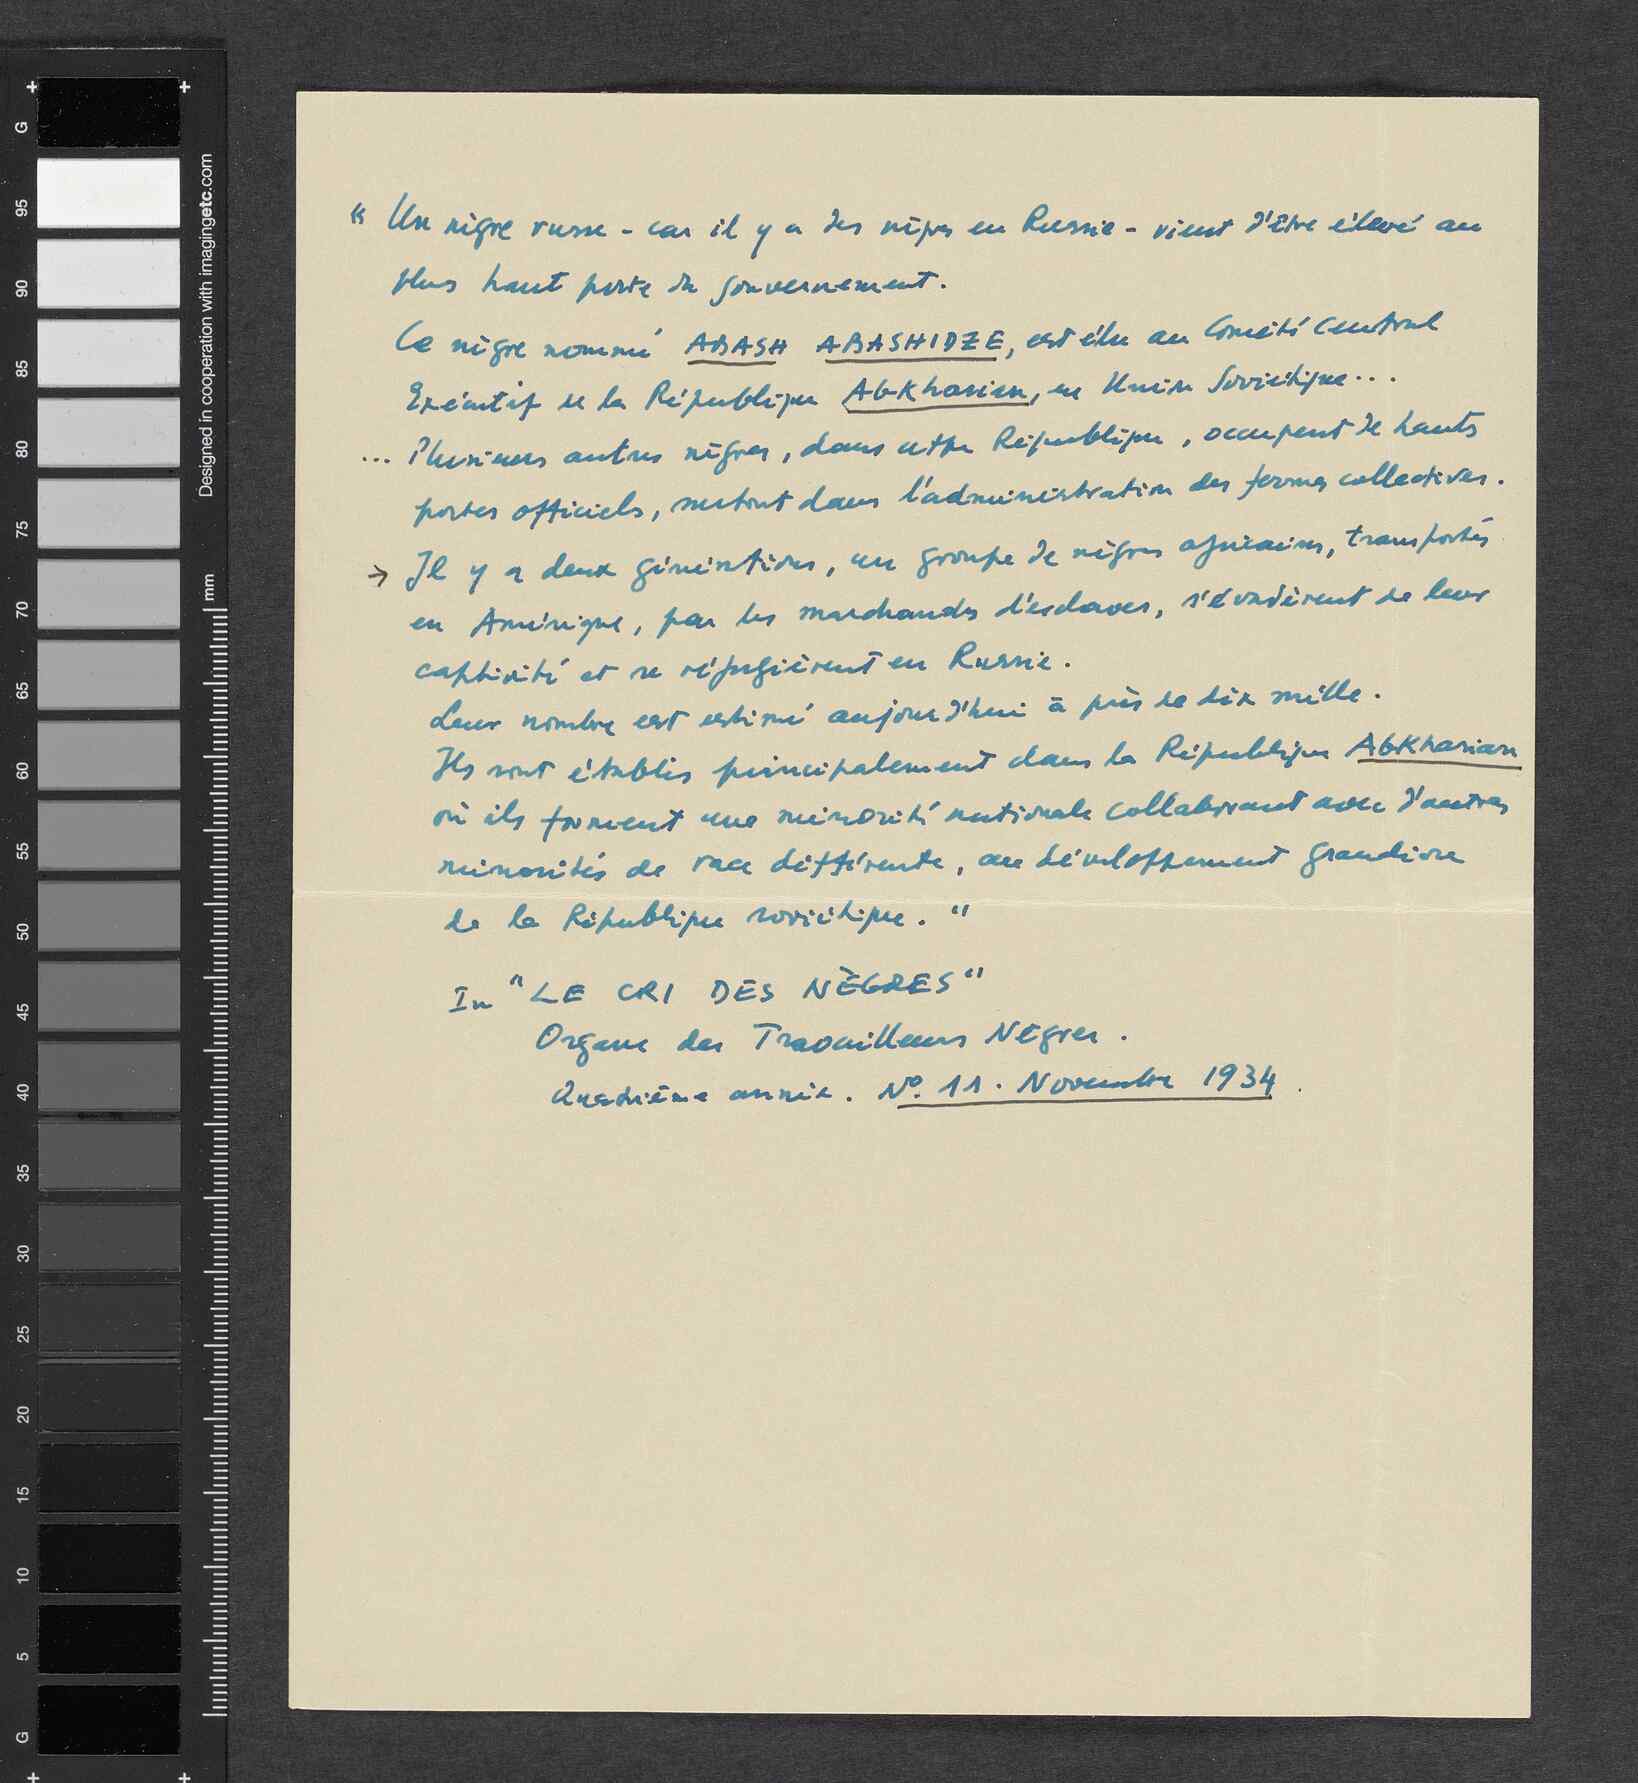 « Un nègre russe - car il y a des nègres en Russie - vient d'être élevé au
plus haut poste du gouvernement.
Ce nègre nommé ABASH ABASHIDZE, est élu au Comité Central
Exécutif de la République Abkhasian, en Union Soviétique...
... Plusieurs autres nègres, dans cette République, occupent de hauts
postes officiels, surtout dans l'administration des fermes collectives.
→ Il y a deux générations, un groupe de nègres africains, transportés
en Amérique, par les marchands d'esclaves, s'évadèrent de leur
captivité et se réfugièrent en Russie.
Leur nombre est estimé aujourd'hui à près de dix mille.
Ils sont établis principalement dans la République Abkhasian
où ils forment une minorité nationale collaborant avec d'autres
minorités de race différente, au développement grandiose
de la République soviétique. "
In "LE CRI DES NÈGRES"
Organe des Travailleurs Nègres.
Quatrième année. No. 11. Novembre 1934.
Designed in cooperation with imagingetc.com
mm
G
95
90
85
80
75
70
65
60
55
50
45
40
35
30
25
20
15
10
5
G